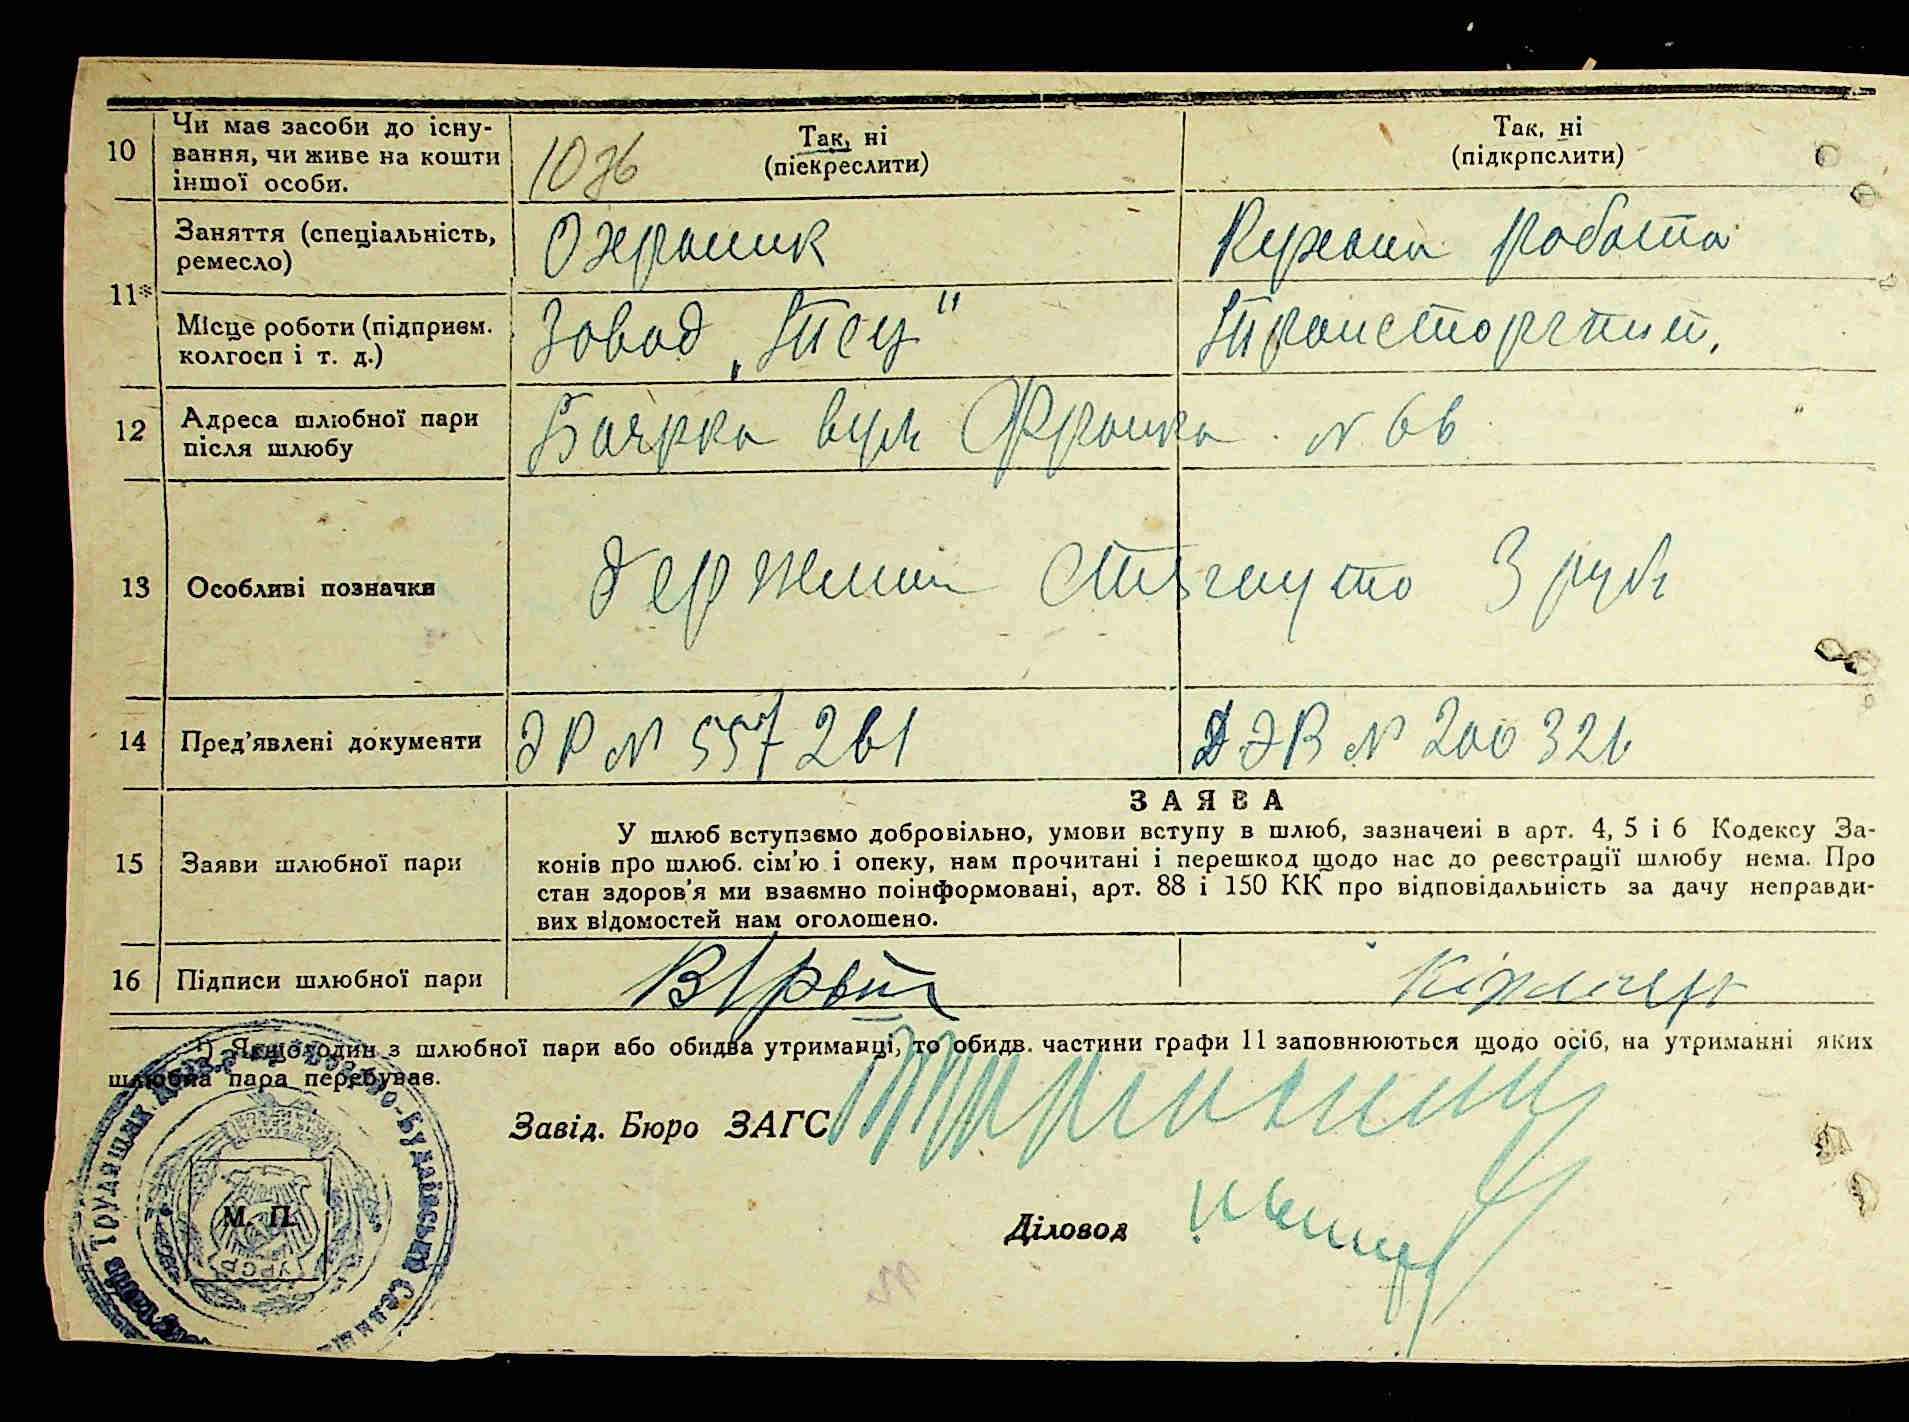 10 Чи має засоби до існу-
вання, чи живе на кошти
іншої особи.
Так, ні
(піекреслити)
Так, ні
(підкрпслити)
11* Заняття (спеціальність,
ремесло)
Охраник
Кухона робота
Місце роботи (підприєм.
колгосп і т. д.)
Завод „Тец"
Транспортний,
12 Адреса шлюбної пари
після шлюбу
Боярка вул Франка № 6в
13 Особливі позначки
Держмита стягнуто 3 руб
14 Пред'явлені документи
ЭР № 557261
ЭВ № 200326
15 Заяви шлюбної пари
ЗАЯВА
У шлюб вступаємо добровільно, умови вступу в шлюб, зазначені в арт. 4, 5 і 6 Кодексу За-
конів про шлюб. сім'ю і опеку, нам прочитані і перешкод щодо нас до реєстрації шлюбу нема. Про
стан здоров'я ми взаємно поінформовані, арт. 88 і 150 КК про відповідальність за дачу неправди-
вих відомостей нам оголошено.
16 Підписи шлюбної пари
*) Якщо один з шлюбної пари або обидва утриманці, то обидв. частини графи 11 заповнюються щодо осіб, на утриманні яких
шлюбна пара перебуває.
Завід. Бюро ЗАГС
М. П.
Діловод
УРСР